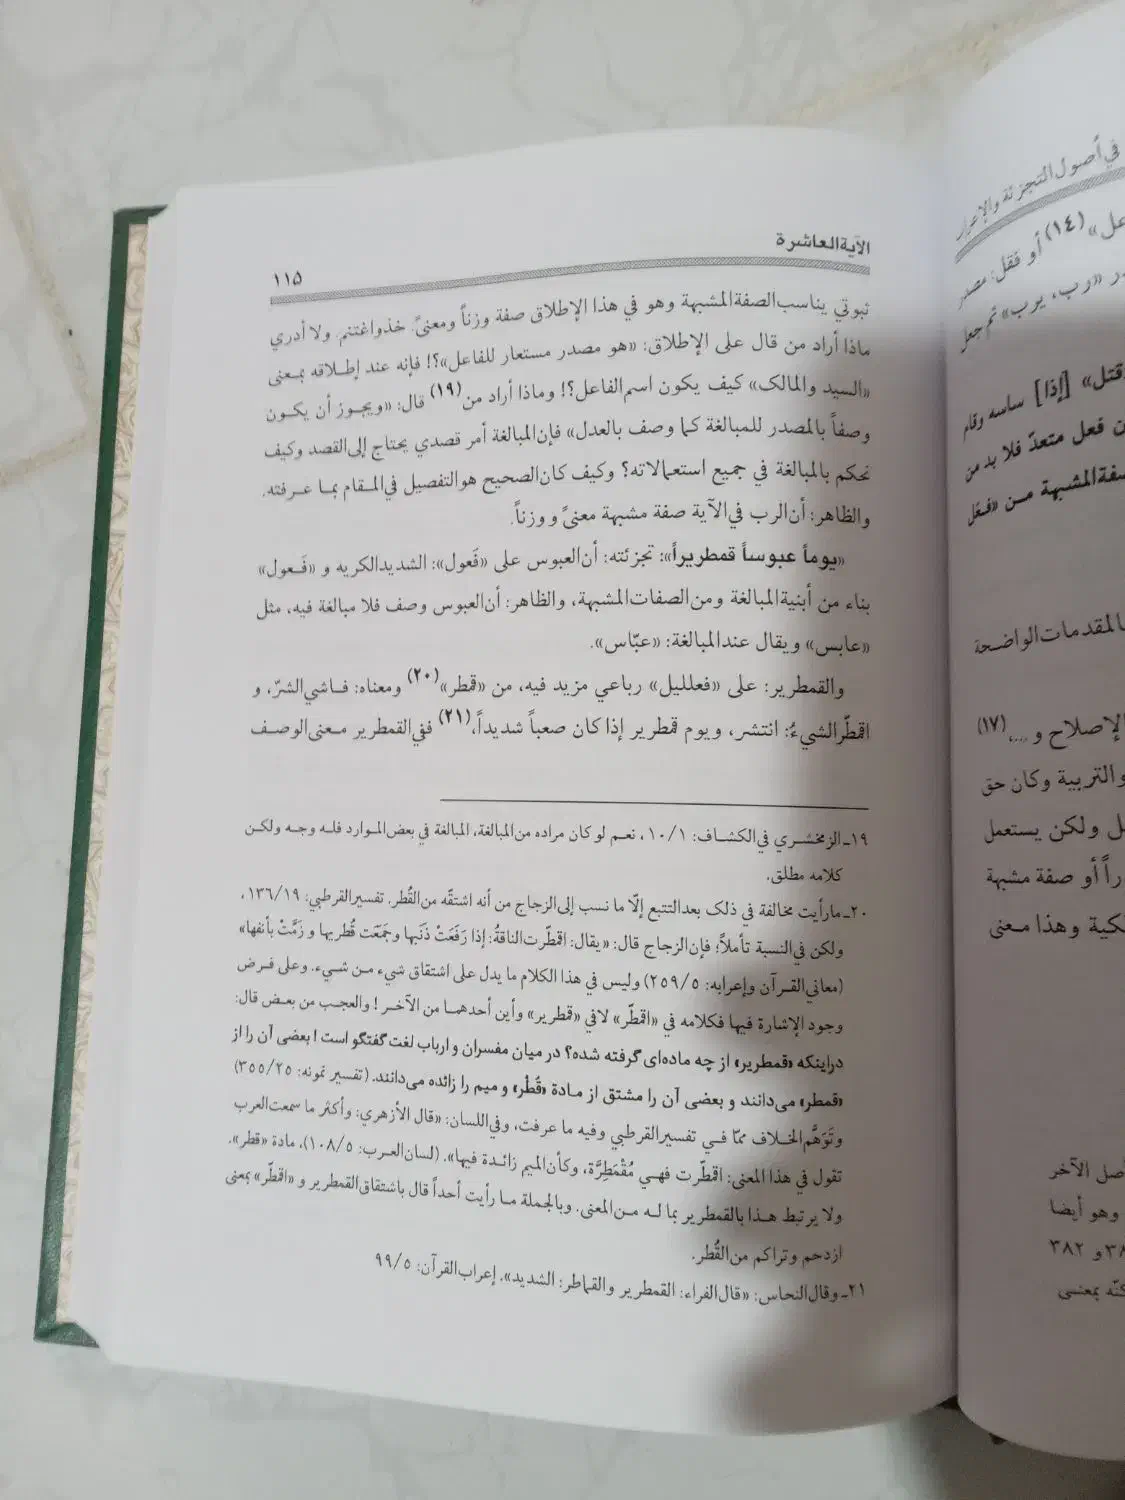 الآية العاشرة
١١٥
ثبوتي يناسب الصفة المشبهة وهو في هذا الإطلاق صفة وزناً ومعنىً. خذ واغتنم. ولا أدري
ماذا أراد من قال على الإطلاق: «هو مصدر مستعار للفاعل»؟! فإنه عند إطلاقه بمعنى
«السيد والمالك» كيف يكون اسم الفاعل؟! وماذا أراد من(١٩) قال: «ويجوز أن يكون
وصفاً بالمصدر للمبالغة كما وصف بالعدل» فإن المبالغة أمر قصدي يحتاج إلى القصد وكيف
نحكم بالمبالغة في جميع استعمالاته؟ وكيف كان الصحيح هو التفصيل في المقام بما عرفته.
والظاهر: أن الرب في الآية صفة مشبهة معنىً ووزناً.
«يوماً عبوساً قمطريراً»: تجزئته: أن العبوس على «فَعول»: الشديد الكريه و «فَعول»
بناء من أبنية المبالغة ومن الصفات المشبهة، والظاهر: أن العبوس وصف فلا مبالغة فيه، مثل
«عابس» ويقال عند المبالغة: «عبّاس».
والقمطرير: على «فعلليل» رباعي مزيد فيه، من «قمطر»(٢٠) ومعناه: فاشي الشرّ، و
اقمطّر الشيءُ: انتشر، ويوم قمطرير إذا كان صعباً شديداً،(٢١) ففي القمطرير معنى الوصف
١٩ـ الزمخشري في الكشاف: ١٠/١، نعم لو كان مراده من المبالغة، المبالغة في بعض الموارد فله وجه ولكن
كلامه مطلق.
٢٠ـ ما رأيت مخالفة في ذلك بعد التتبع إلّا ما نسب إلى الزجاج من أنه اشتقّه من القُطر. تفسير القرطبي: ١٣٦/١٩،
ولكن في النسبة تأملاً؛ فإن الزجاج قال: «يقال: اقمطّرت الناقةُ: إذا رَفَعَتْ ذَنَبها وجمَعَت قُطريها و زَمَّتْ بأنفها»
(معاني القرآن وإعرابه: ٢٥٩/٥) وليس في هذا الكلام ما يدل على اشتقاق شيء من شيء. وعلى فرض
وجود الإشارة فيها فكلامه في «اقمطّر» لا في «قمطرير» وأين أحدهما من الآخر! والعجب من بعض قال:
در اینکه «قمطریر» از چه ماده‌ای گرفته شده؟ در میان مفسران و ارباب لغت گفتگو است! بعضی آن را از
«قمطر» می‌دانند و بعضی آن را مشتق از مادهٔ «قُطْر» و میم را زائده می‌دانند. (تفسیر نمونه: ٣٥٥/٢٥)
وتَوَهُّم الخلاف ممّا في تفسير القرطبي وفيه ما عرفت، وفي اللسان: «قال الأزهري: وأكثر ما سمعت العرب
تقول في هذا المعنى: اقمطّرت فهي مُقْمَطِرَّة، وكأن الميم زائدة فيها». (لسان العرب: ١٠٨/٥)، مادة «قطر».
ولا يرتبط هذا بالقمطرير بما له من المعنى. وبالجملة ما رأيت أحداً قال باشتقاق القمطرير و «اقمطّر» بمعنى
ازدحم وتراكم من القُطر.
٢١ـ وقال النحاس: «قال الفراء: القمطرير والقماطر: الشديد». إعراب القرآن: ٩٩/٥
في أصول التجزئة والإعراب
عل»(١٤) أو فقل: مصدر
ر «رب، يرب» ثم جعل
قتل» [إذا] ساسه وقام
ن فعل متعدّ فلا بد من
صفة المشبهة من «فعُل
المقدمات الواضحة
لإصلاح و ...،(١٧)
والتربية وكان حق
ل ولكن يستعمل
راً أو صفة مشبهة
لكية وهذا معنى
أصل الآخر
وهو أيضا
و ٣٨٢
كنّه بمعنى